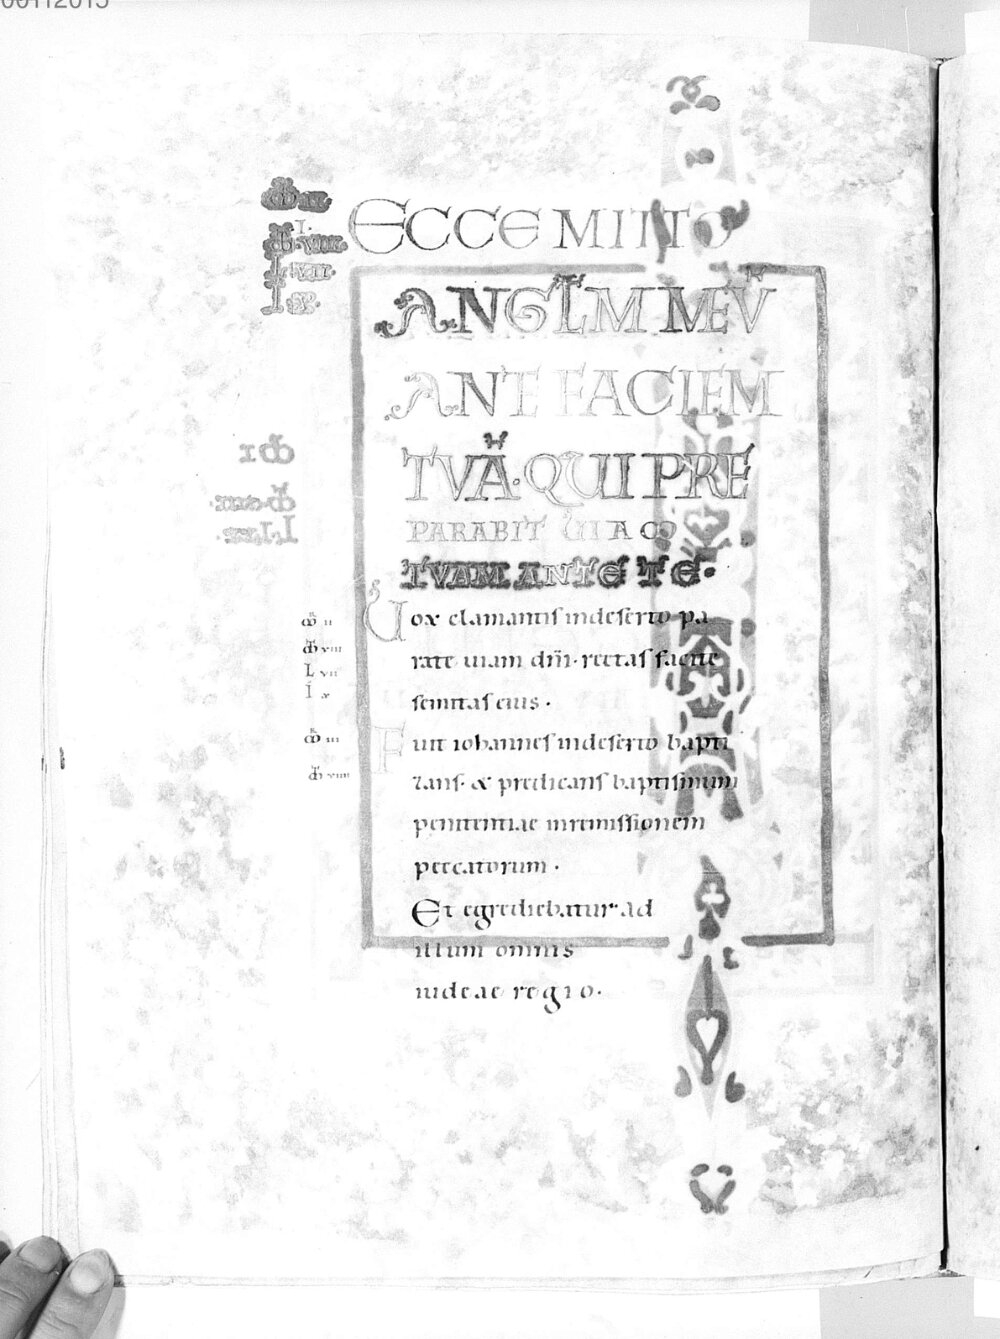 00112015
ECCE MITTO
ANGLM MEV̄
ANT FACIEM
TVĀ· QUI PRE
PARABIT UIAM
TVAM ANTE TE·
Uox clamantis in deserto pa
rate uiam dn̄i· rectas facite
semitas eius·
Fuit iohannes in deserto bapti
zans· & predicans baptismum
penitentiae in remissionem
peccatorum·
Et egrediebatur ad
illum omnis
iudeae regio·
M II
M VIII
L VII
I X
M III
M VIIII